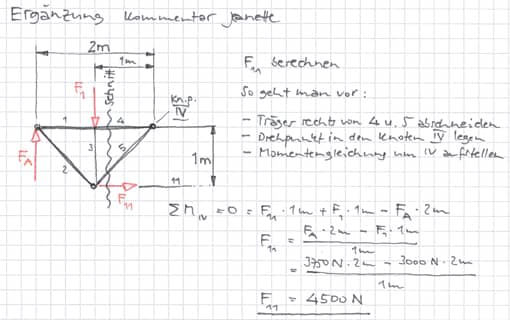 Ergänzung Kommentar Janette
2m
1m
F₁
Schnitt
Kn.p.
IV
1
4
3
2
5
F_A
1m
11
F₁₁
F₁₁ berechnen
So geht man vor:
- Träger rechts von 4 u. 5 abschneiden
- Drehpunkt in den Knoten IV legen
- Momentengleichung um IV aufstellen
ΣM_IV = 0 = F₁₁ · 1m + F₁ · 1m - F_A · 2m
F₁₁ = (F_A · 2m - F₁ · 1m) / 1m
= (3750N · 2m - 3000N · 2m) / 1m
F₁₁ = 4500N